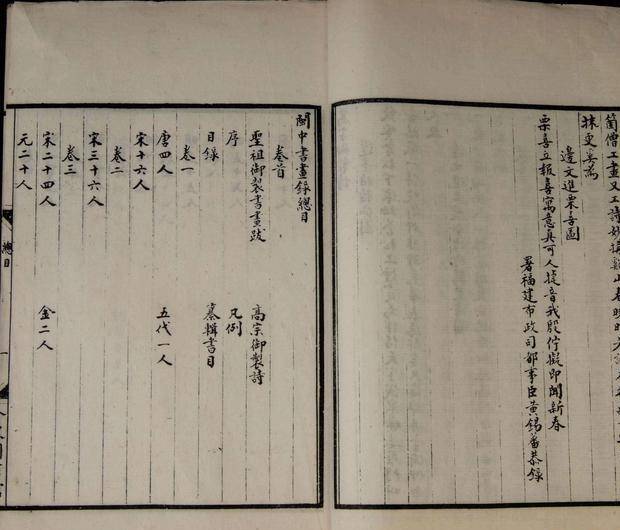 僧工畫又工詩妙
抹更
邊文進栗喜圖
栗喜立報喜寓意真可人 音我 佇擬即聞新春
署福建布政司都事臣黃錫蕃恭錄
閩中書畫錄總目
卷首
聖祖御製書畫跋 高宗御製詩
序 凡例
目錄 纂輯書目
卷一
唐四人 五代一人
宋十六人
卷二
宋三十六人
卷三
宋二十四人 金二人
元二十人
總目
一